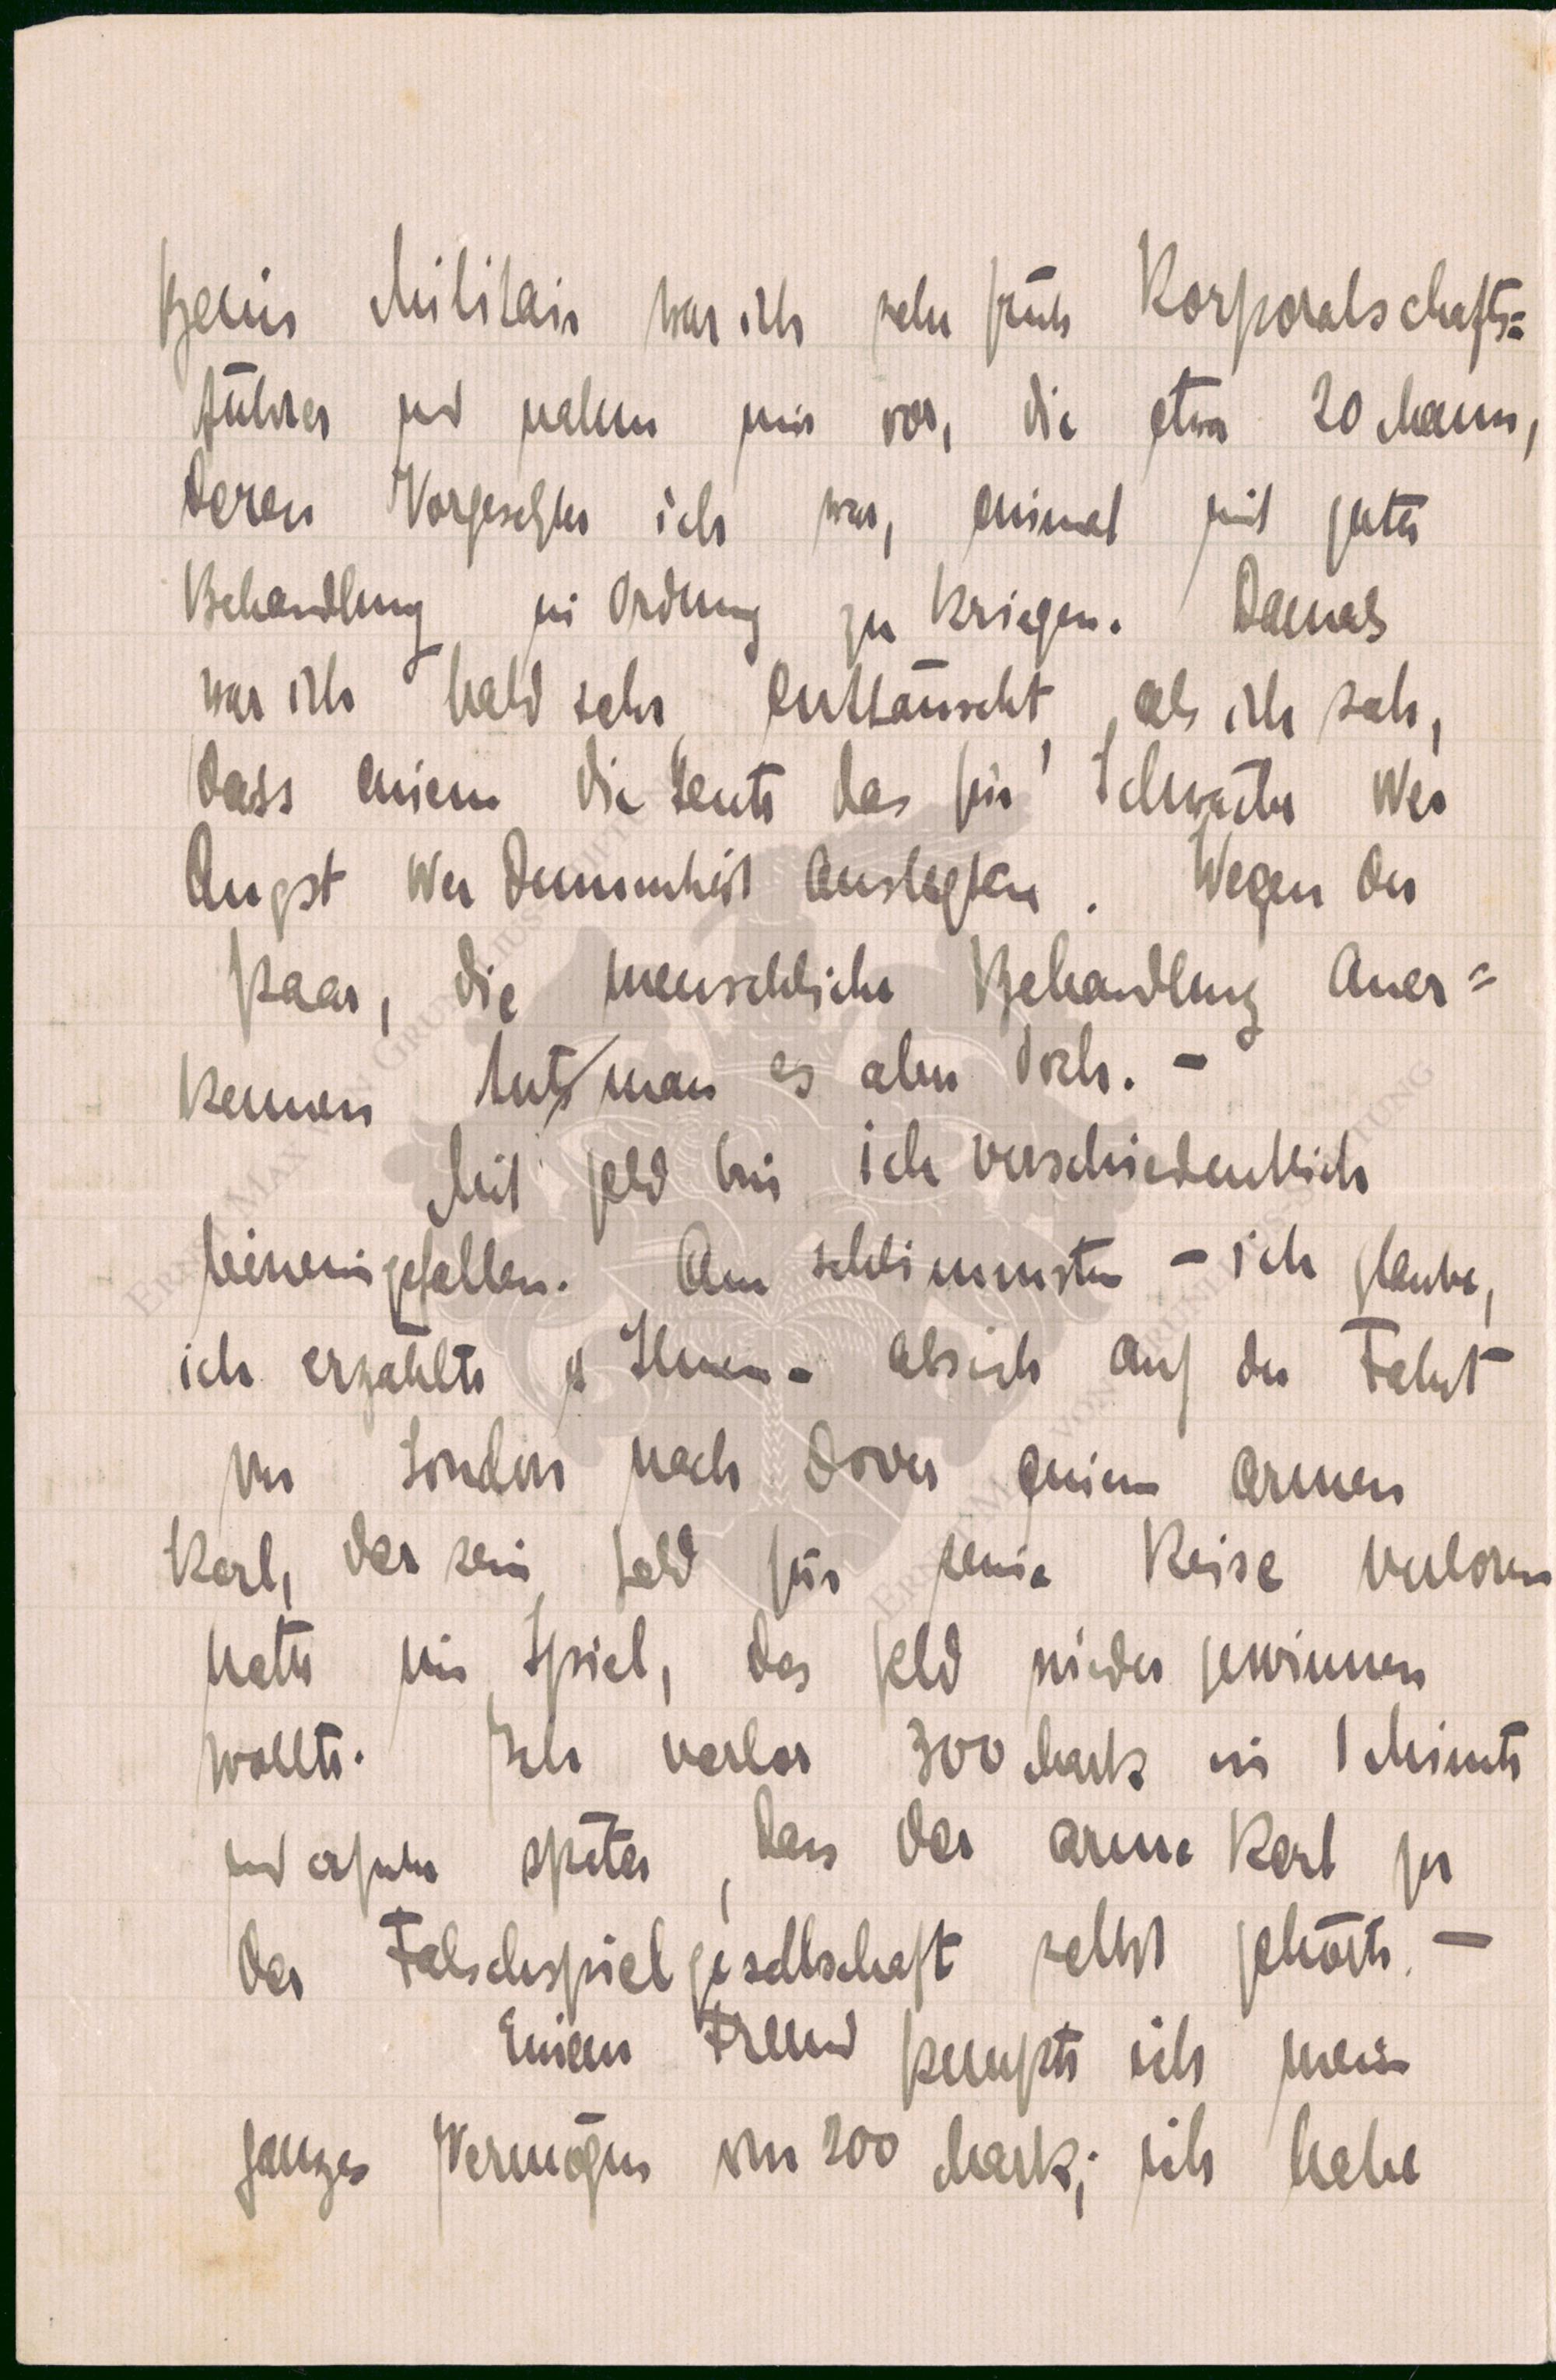 Beim Militair war ich sehr früh Korporalschafts=
führer und nahm mir vor, die etwa 20 Mann,
deren Vorgesetzter ich war, einmal mit guter
Behandlung in Ordnung zu kriegen. Damals
war ich bald sehr enttäuscht, als ich sah,
dass einem die Leute das für Schwäche oder
Angst oder Dummheit auslegten. Wegen der
paar, die menschliche Behandlung aner=
kennen tut man es aber doch. –
Mit Geld bin ich verschiedentlich
hineingefallen. Am schlimmsten – ich glaube,
ich erzählte es Ihnen – als ich auf der Fahrt
von London nach Dover einem armen
Kerl, der sein Geld für seine Reise verloren
hatte im Spiel, das Geld wieder gewinnen
wollte. Ich verlor 300 Mark in 1 Minute
und erfuhr später, dass der arme Kerl zu
der Falschspielgesellschaft selbst gehörte. –
Einem Freund pumpte ich mein
ganzes Vermögen von 200 Mark; ich habe
ERNST MAX VON GRUMELIUS-STIFTUNG
ERNST MAX VON GRUMELIUS-STIFTUNG